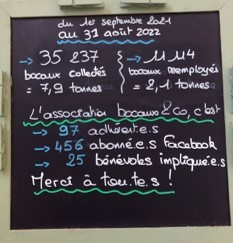 du 1er septembre 2021
au 31 août 2022
→ 35 237 → 11 114
bocaux collectés bocaux réemployés
= 7,9 tonnes = 2,1 tonnes
L'association bocaux & co, c'est
→ 97 adhérent.e.s
→ 456 abonné.e.s Facebook
→ 25 bénévoles impliqué.e.s
Merci à tou.te.s !